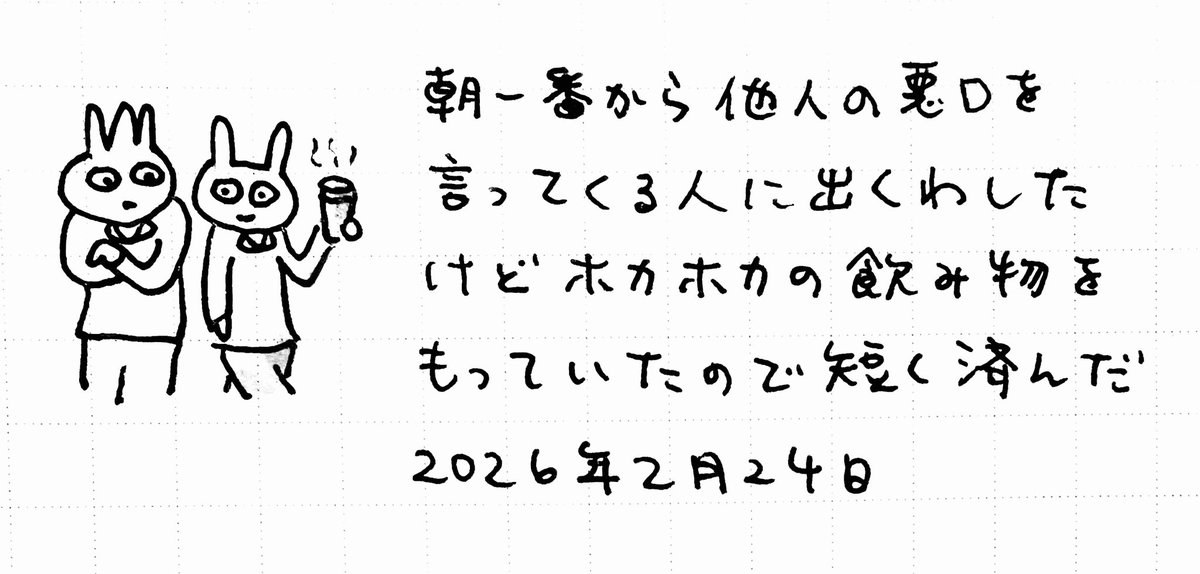 朝一番から他人の悪口を
言ってくる人に出くわした
けどホカホカの飲み物を
もっていたので短く済んだ
2026年2月24日